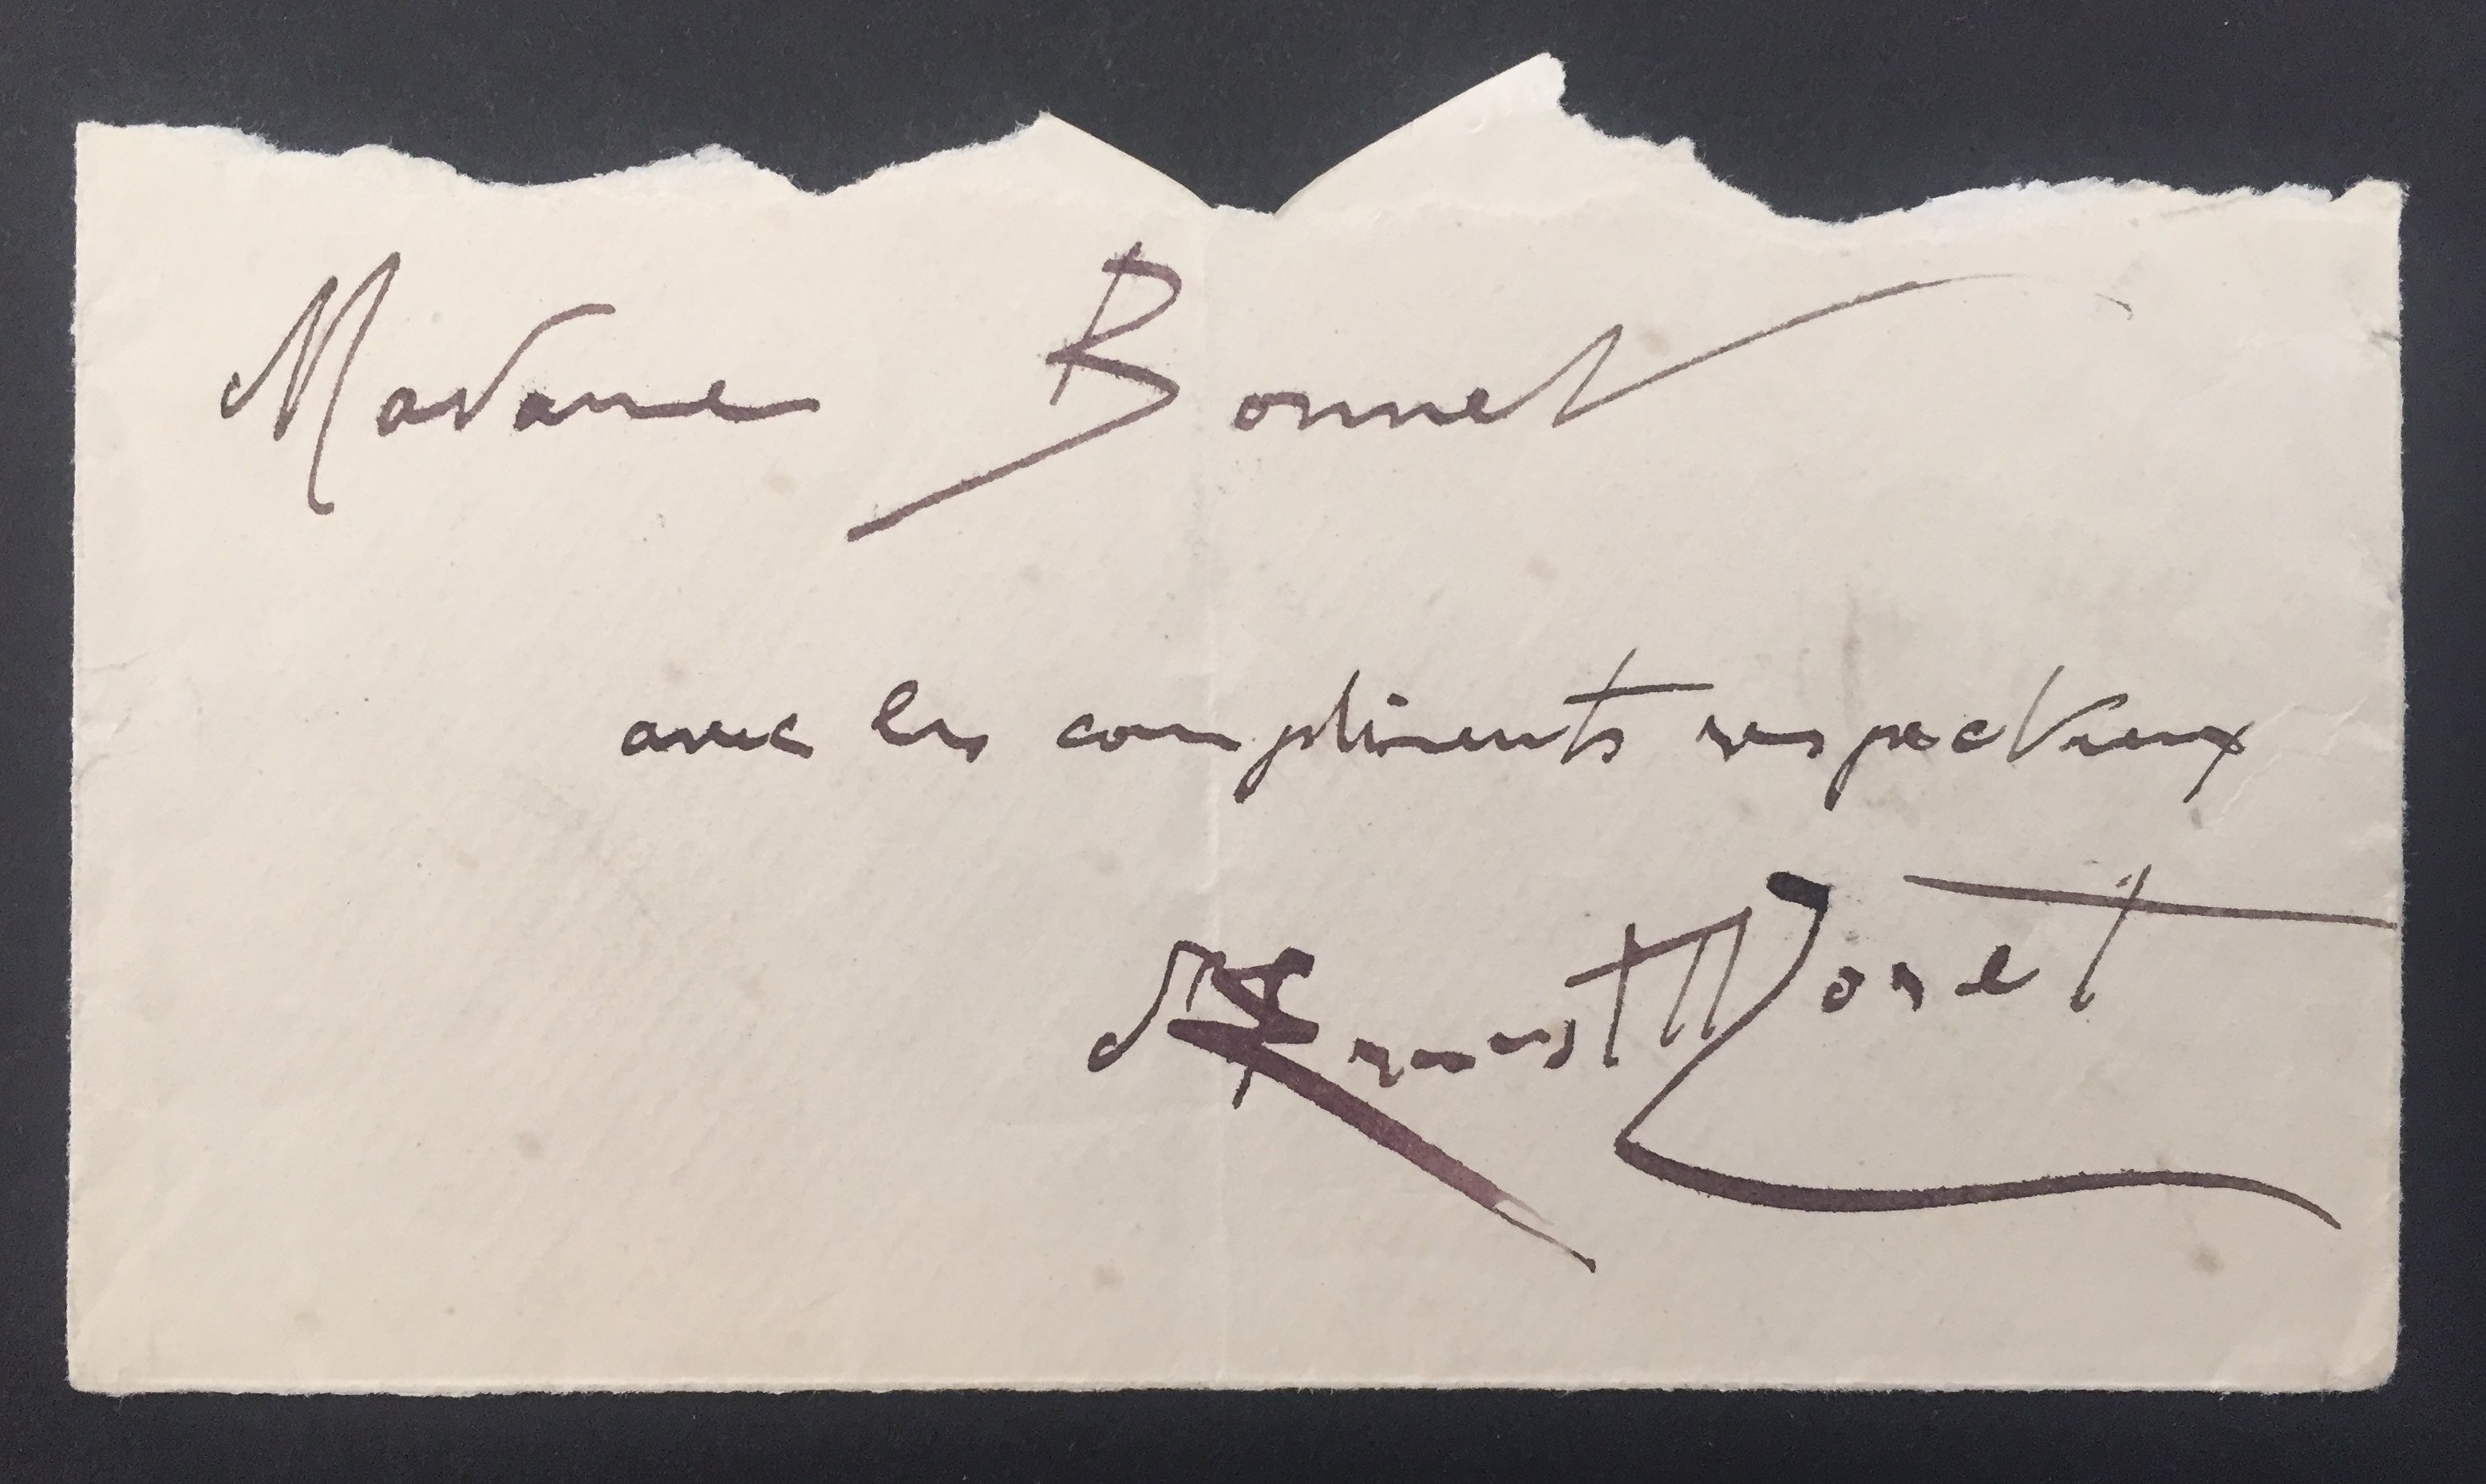 Madame Bonnet
avec les compliments respectueux
d'Ernest Moret